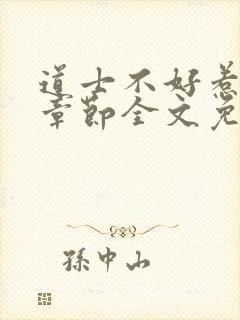 道士不好惹
章節全文免
孫中山